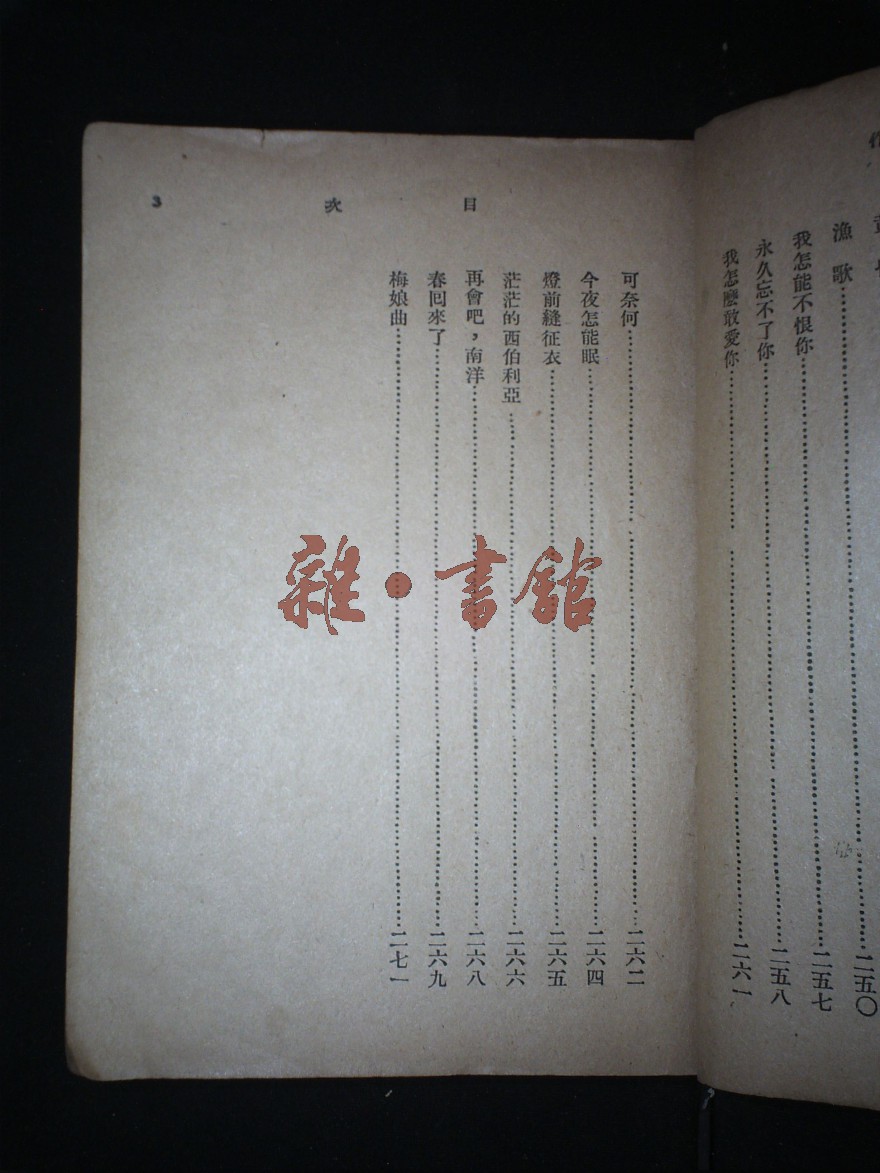 漁歌……二五〇
我怎能不恨你……二五七
永久忘不了你……二五八
我怎麽敢愛你……二六一
目次 3
可奈何……二六二
今夜怎能眠……二六四
燈前縫征衣……二六五
茫茫的西伯利亞……二六六
再會吧，南洋……二六八
春回來了……二六九
梅娘曲……二七一
雜·書館